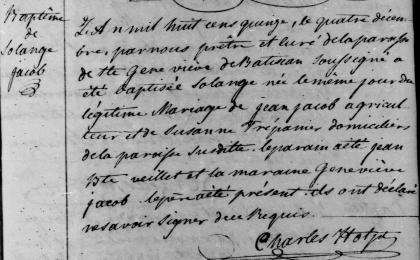 Baptême
de
Solange
jacob
L'An mil huit cens quinze, le quatre décem-
bre, par nous prêtre et curé de la paroisse
de Ste Geneviève de Batiscan Soussigné a
été baptisée Solange née le même jour du
légitime Mariage de jean jacob agricul-
teur et de Susanne Trépanier domiciliés
de la paroisse susditte. le parain a été jean
Bte veillet et la maraine Geneviève
jacob le père a été présent ils ont déclaré
ne savoir signer de ce Requis.
Charles